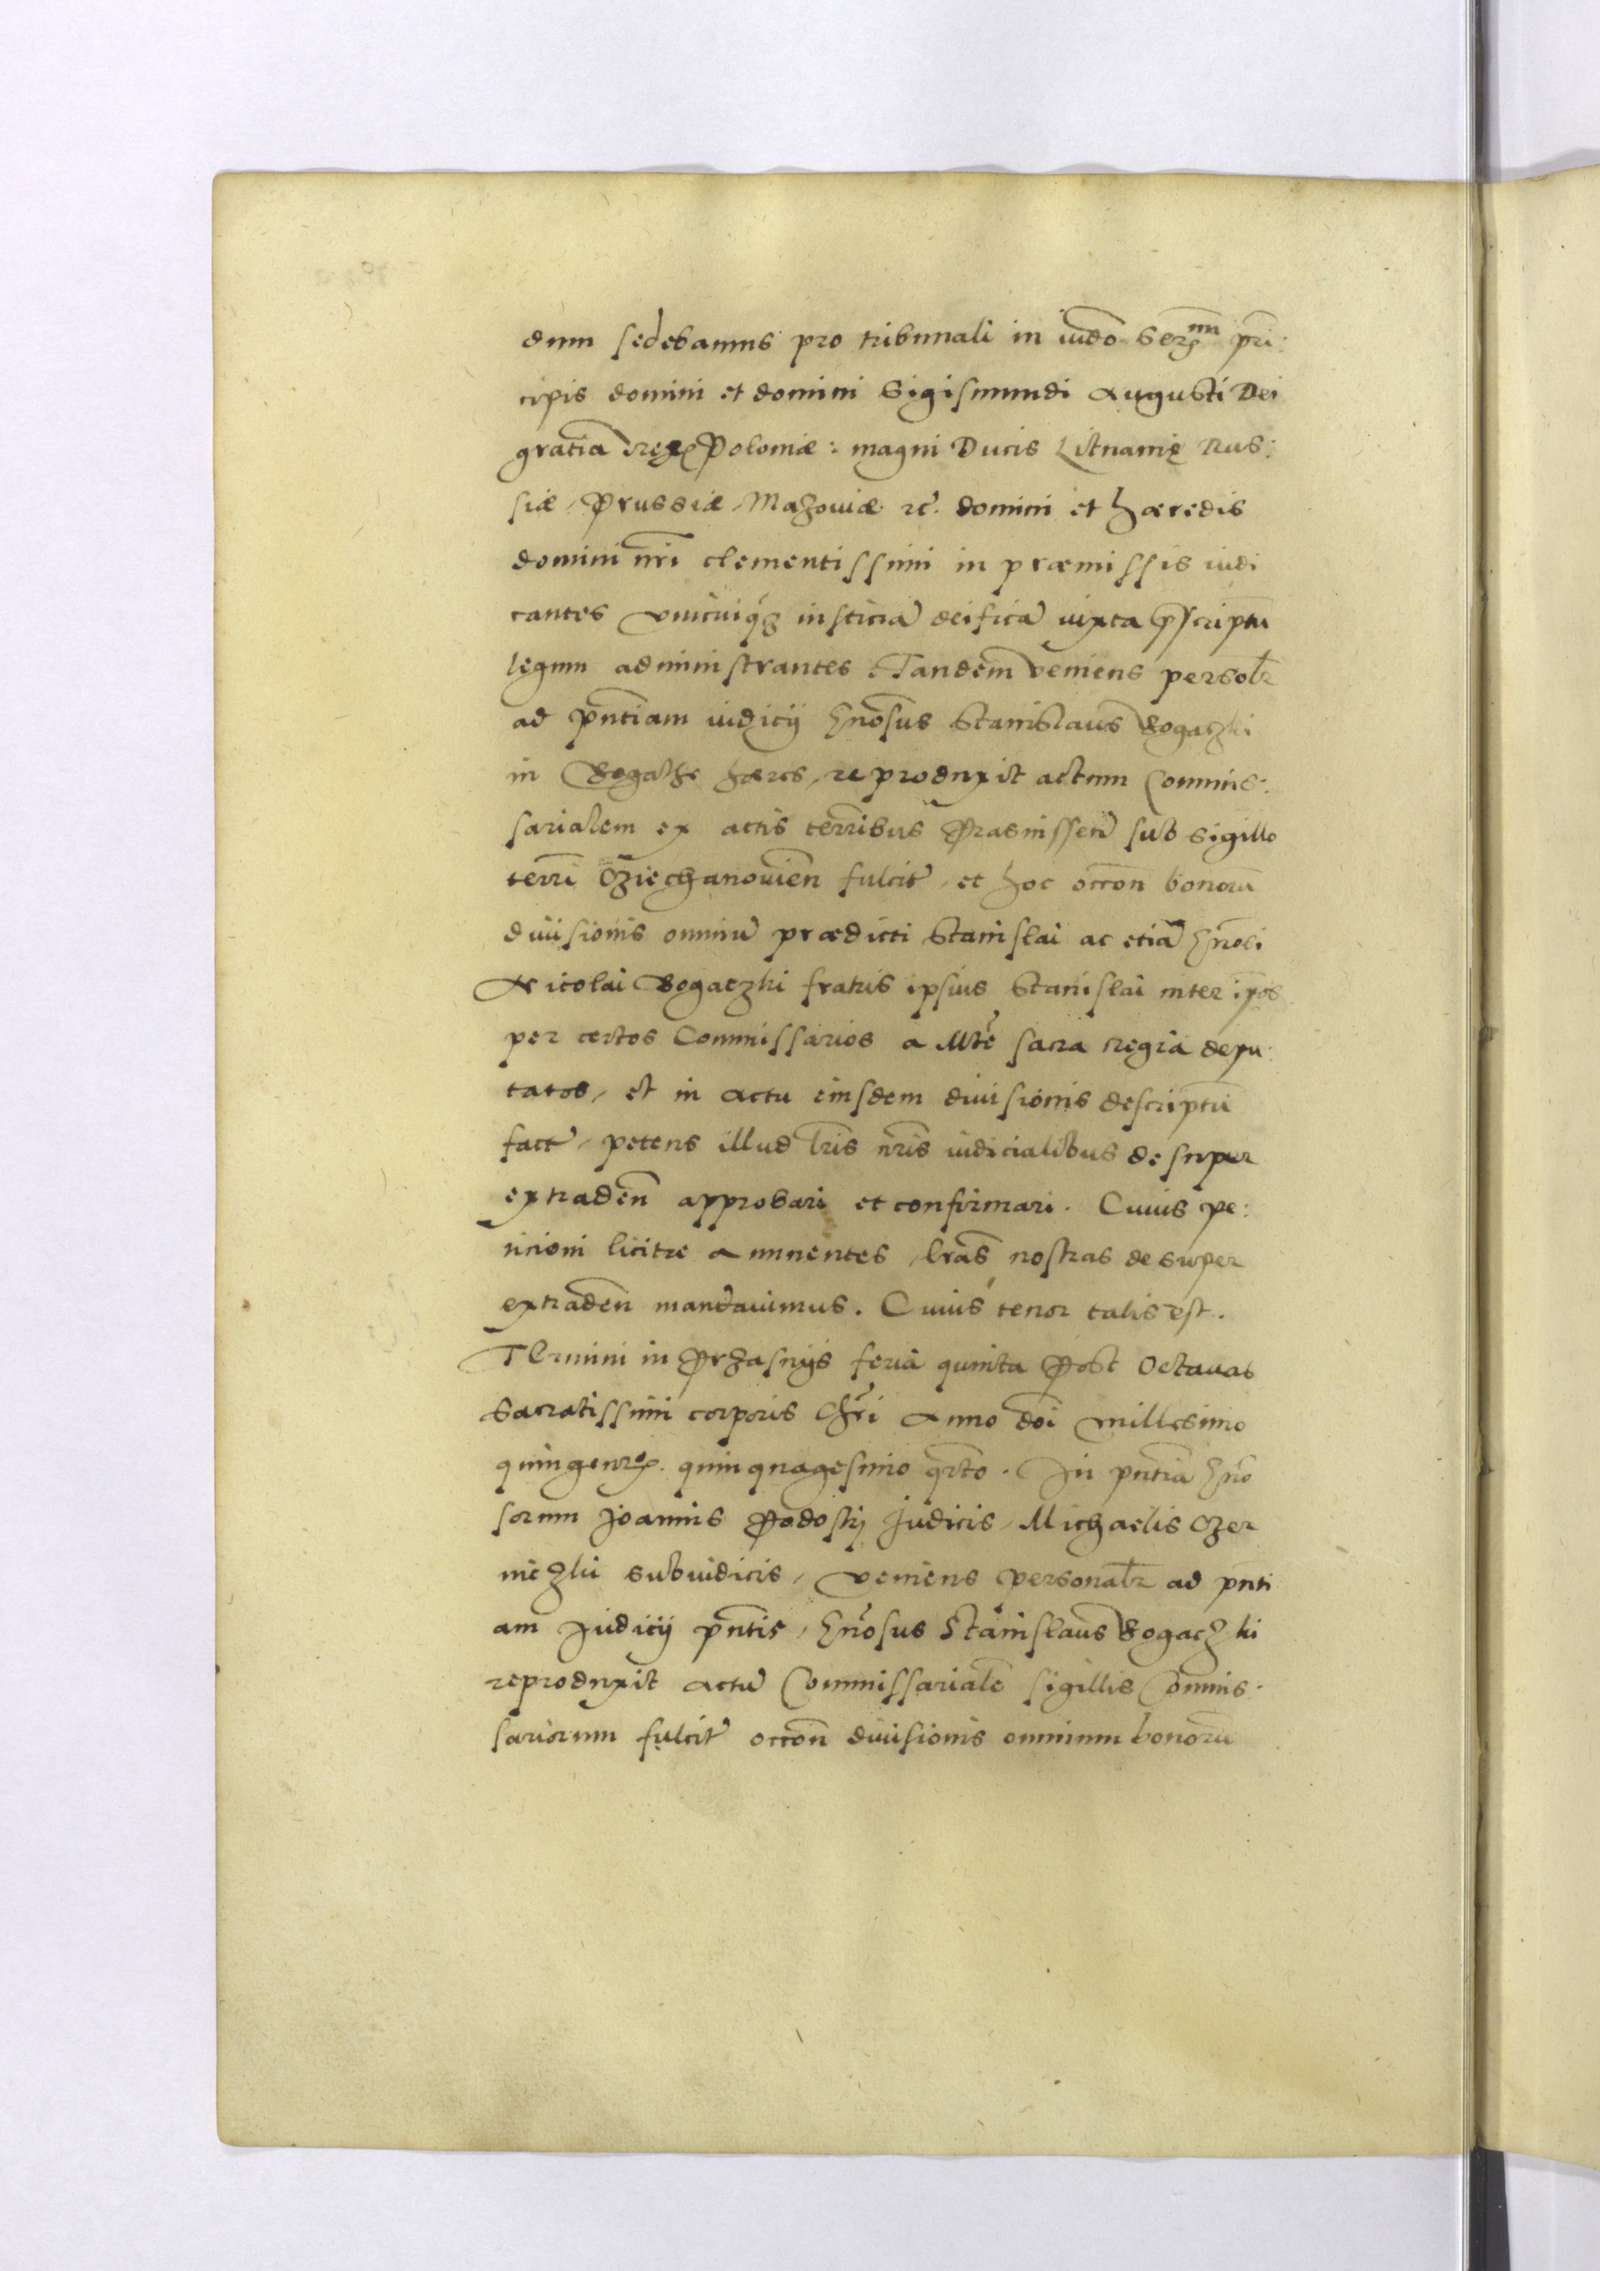 dum sedebamus pro tribunali in iudo Sermi pri:
cipis domini et domini Sigismundi Augusti Dei
gratia regis Poloniæ: magni Ducis Lituaniȩ Rus:
siæ, Prussiæ, Mazouiæ etc. domini et hæredis
domini nri clementissimi in præmissis iudi
cantes vnicuiq3 iusticiā deificā iuxta prscriptū
legum administrantes. Tandem veniens personlr
ad pntiam iudicij Gnosus Stanislaus Bogaczki
in Bogacze hæres, reproduxit actum Commis:
sarialem ex actis terribus Prasnissen̄ sub sigillo
terri Cziechanouien̄ fulcit̄, et hoc occon̄ bonorū
diuisionis omniū prædicti Stanislai ac etiā Gnosi
Nicolai Bogaczki fratris ipsius Stanislai inter ipos
per certos Commissarios a Mte sacra regia depu:
tatos, et in actu eiusdem diuisionis descriptū
fact̄, petens illud lris nris iudicialibus desuper
extraden̄ approbari et confirmari. Cuius pe:
ticioni licitæ annuentes, lras nostras desuper
extraden̄ mandauimus. Cuius tenor talis est.
Termini in Przasnijs feria quinta Post Octauas
Sacratissimi corporis Chri Anno doi millesimo
quingento. quinquagesimo qrto. In pntia Gno
sorum Joannis Podoskj Judicis, Michaelis Czer
niczki subiudicis, veniens personalr ad pnti
am Judicij pntis, Gnosus Stanislaus Bogaczki
reproduxit actū Commissarialē sigillis Commis:
sariorum fulcit̄ occon̄ diuisionis omnium bonorū